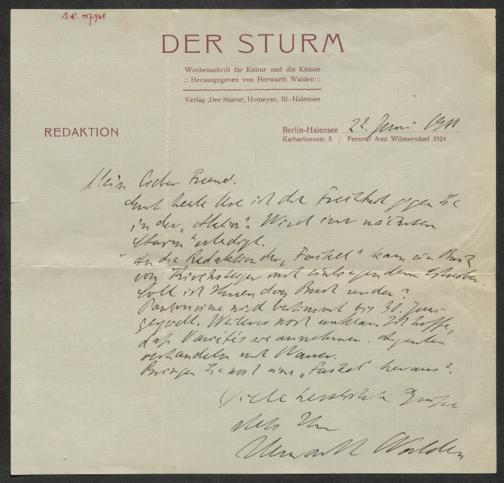 DER STURM
Wochenschrift für Kultur und die Künste
:: Herausgegeben von Herwarth Walden ::
Verlag „Der Sturm“, Homeyer, Ill.-Halensee
REDAKTION
Berlin-Halensee 22. Juni 1911
Katharinenstr. 5 / Fernruf Amt Wilmersdorf 3524
Mein lieber Freund.
heute ist die Frechheit gegen Sie
in der „Aktion“. Wird im nächsten
Sturm erledigt.
An die Redaktion der „Fackel“ kam ein Buch
von mit
Soll ich Ihnen das Buch senden?
Pantomime wird bestimmt bis 30. Juni
gespielt. Weiteres noch unklar. Ich hoffe,
daß Variétés sie annehmen. Agenten
verhandeln mit
Bringen Sie noch eine „Fackel“ heraus?
Viele herzliche Grüße
stets Ihr
Herwarth Walden